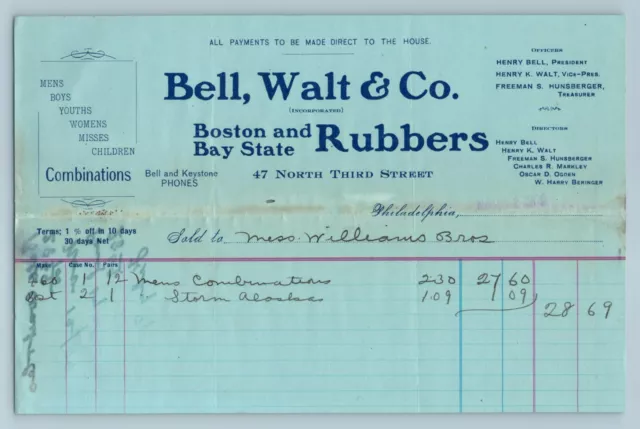 ALL PAYMENTS TO BE MADE DIRECT TO THE HOUSE.
MENS
BOYS
YOUTHS
WOMENS
MISSES
CHILDREN
Combinations
Bell, Walt & Co.
(INCORPORATED)
Boston and
Bay State
Rubbers
Bell and Keystone
PHONES
47 NORTH THIRD STREET
OFFICERS
HENRY BELL, PRESIDENT
HENRY K. WALT, VICE-PRES.
FREEMAN S. HUNSBERGER,
TREASURER
DIRECTORS
HENRY BELL
HENRY K. WALT
FREEMAN S. HUNSBERGER
CHARLES R. MARKLEY
OSCAR D. OGREN
W. HARRY BERINGER
Philadelphia,
Terms; 1 % off in 10 days
30 days Net
Sold to Mess. Williams Bros
Make Case No. Pairs
1 12 Mens Combinations 2.30 27 60
2 1 Storm Alaskas 1.09 1 09
28 69